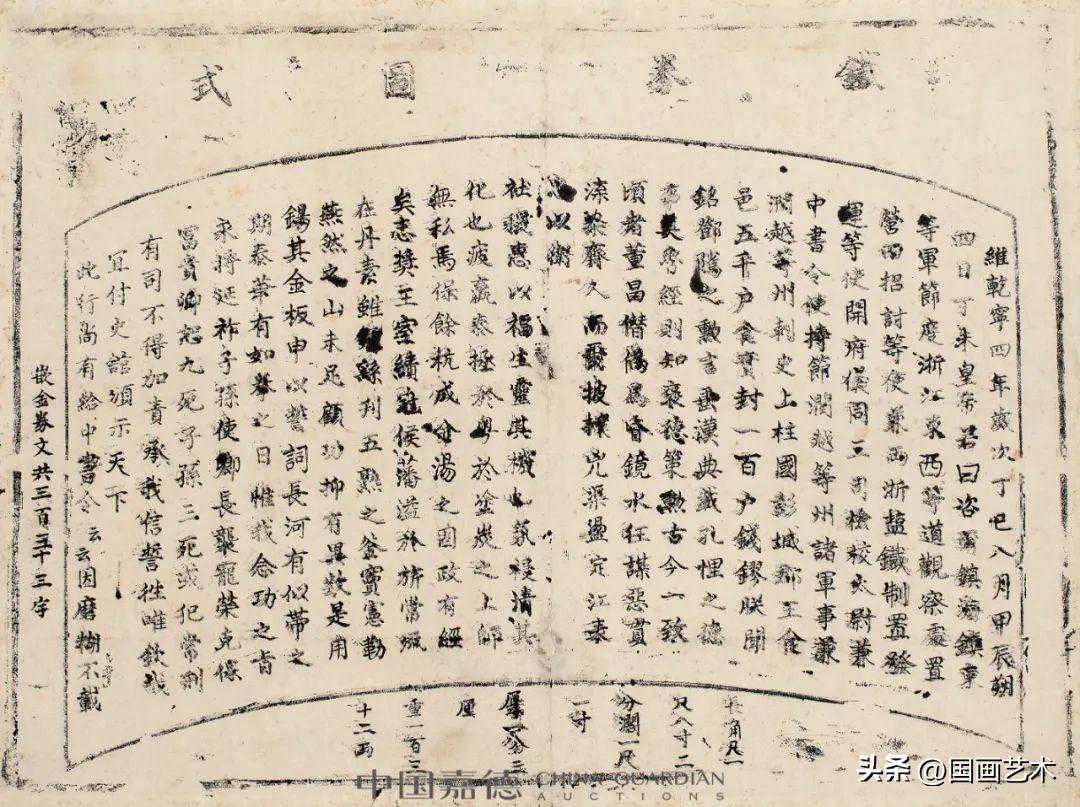 鐵券圖式
維乾寧四年歲次丁巳八月甲辰朔
四日丁未皇帝若曰咨爾鎮海鎮東
等軍節度浙江東西等道觀察處置
營田招討等使兼兩浙鹽鐵制置發
運等使開府儀同三司檢校太尉兼
中書令使持節潤越等州諸軍事兼
潤越等州刺史上柱國彭城郡王食
邑五千戶食實封一百戶錢鏐朕聞
銘鄧隲之勳言垂漢典載孔悝之德
事美魯經則知褒德策勳古今一致
頃者董昌僭偽為昏鏡水狂謀惡貫
渫染齊人而爾披攘兇渠盪定江表
忠以衛
社稷惠以福生靈其機也氛祲清其
化也疲羸泰拯於粵於塗炭之上師
無私焉保餘杭成金湯之固政有經
矣志獎王室績冠侯藩溢於旂常流
在丹素雖鍾繇刊五熟之釜竇憲勒
燕然之山未足顧功抑有異數是用
錫其金板申以誓詞長河有似帶之
期泰華有如拳之日惟我念功之旨
永持延祚子孫使卿長襲寵榮克保
富貴卿恕九死子孫三死或犯常刑
有司不得加責承我信誓往唯欽哉
宜付史館頒示天下
此行尚有給中書令云云因磨糊不載
嵌金券文共三百三十三字
尺八寸二
分濶一尺
一寸
厚一分三
厘
重一百三
十二兩
中国嘉德 CHINA GUARDIAN
AUCTIONS
头条 @国画艺术